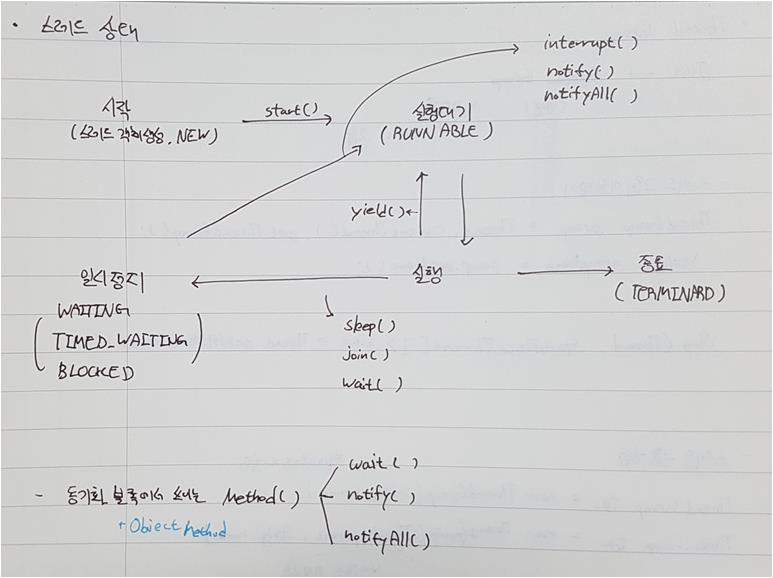 • 스레드 상태
interrupt()
notify()
notifyAll( )
시작
(스레드 객체생성, NEW)
start()
실행대기
(RUNNABLE)
yield()
일시정지
WAITING
TIMED_WAITING
BLOCKED
실행
종료
(TERMINARD)
sleep()
join()
wait( )
- 동기화 블록에서 쓰이는 Method()
+ Object Method
wait( )
notify( )
notifyAll( )